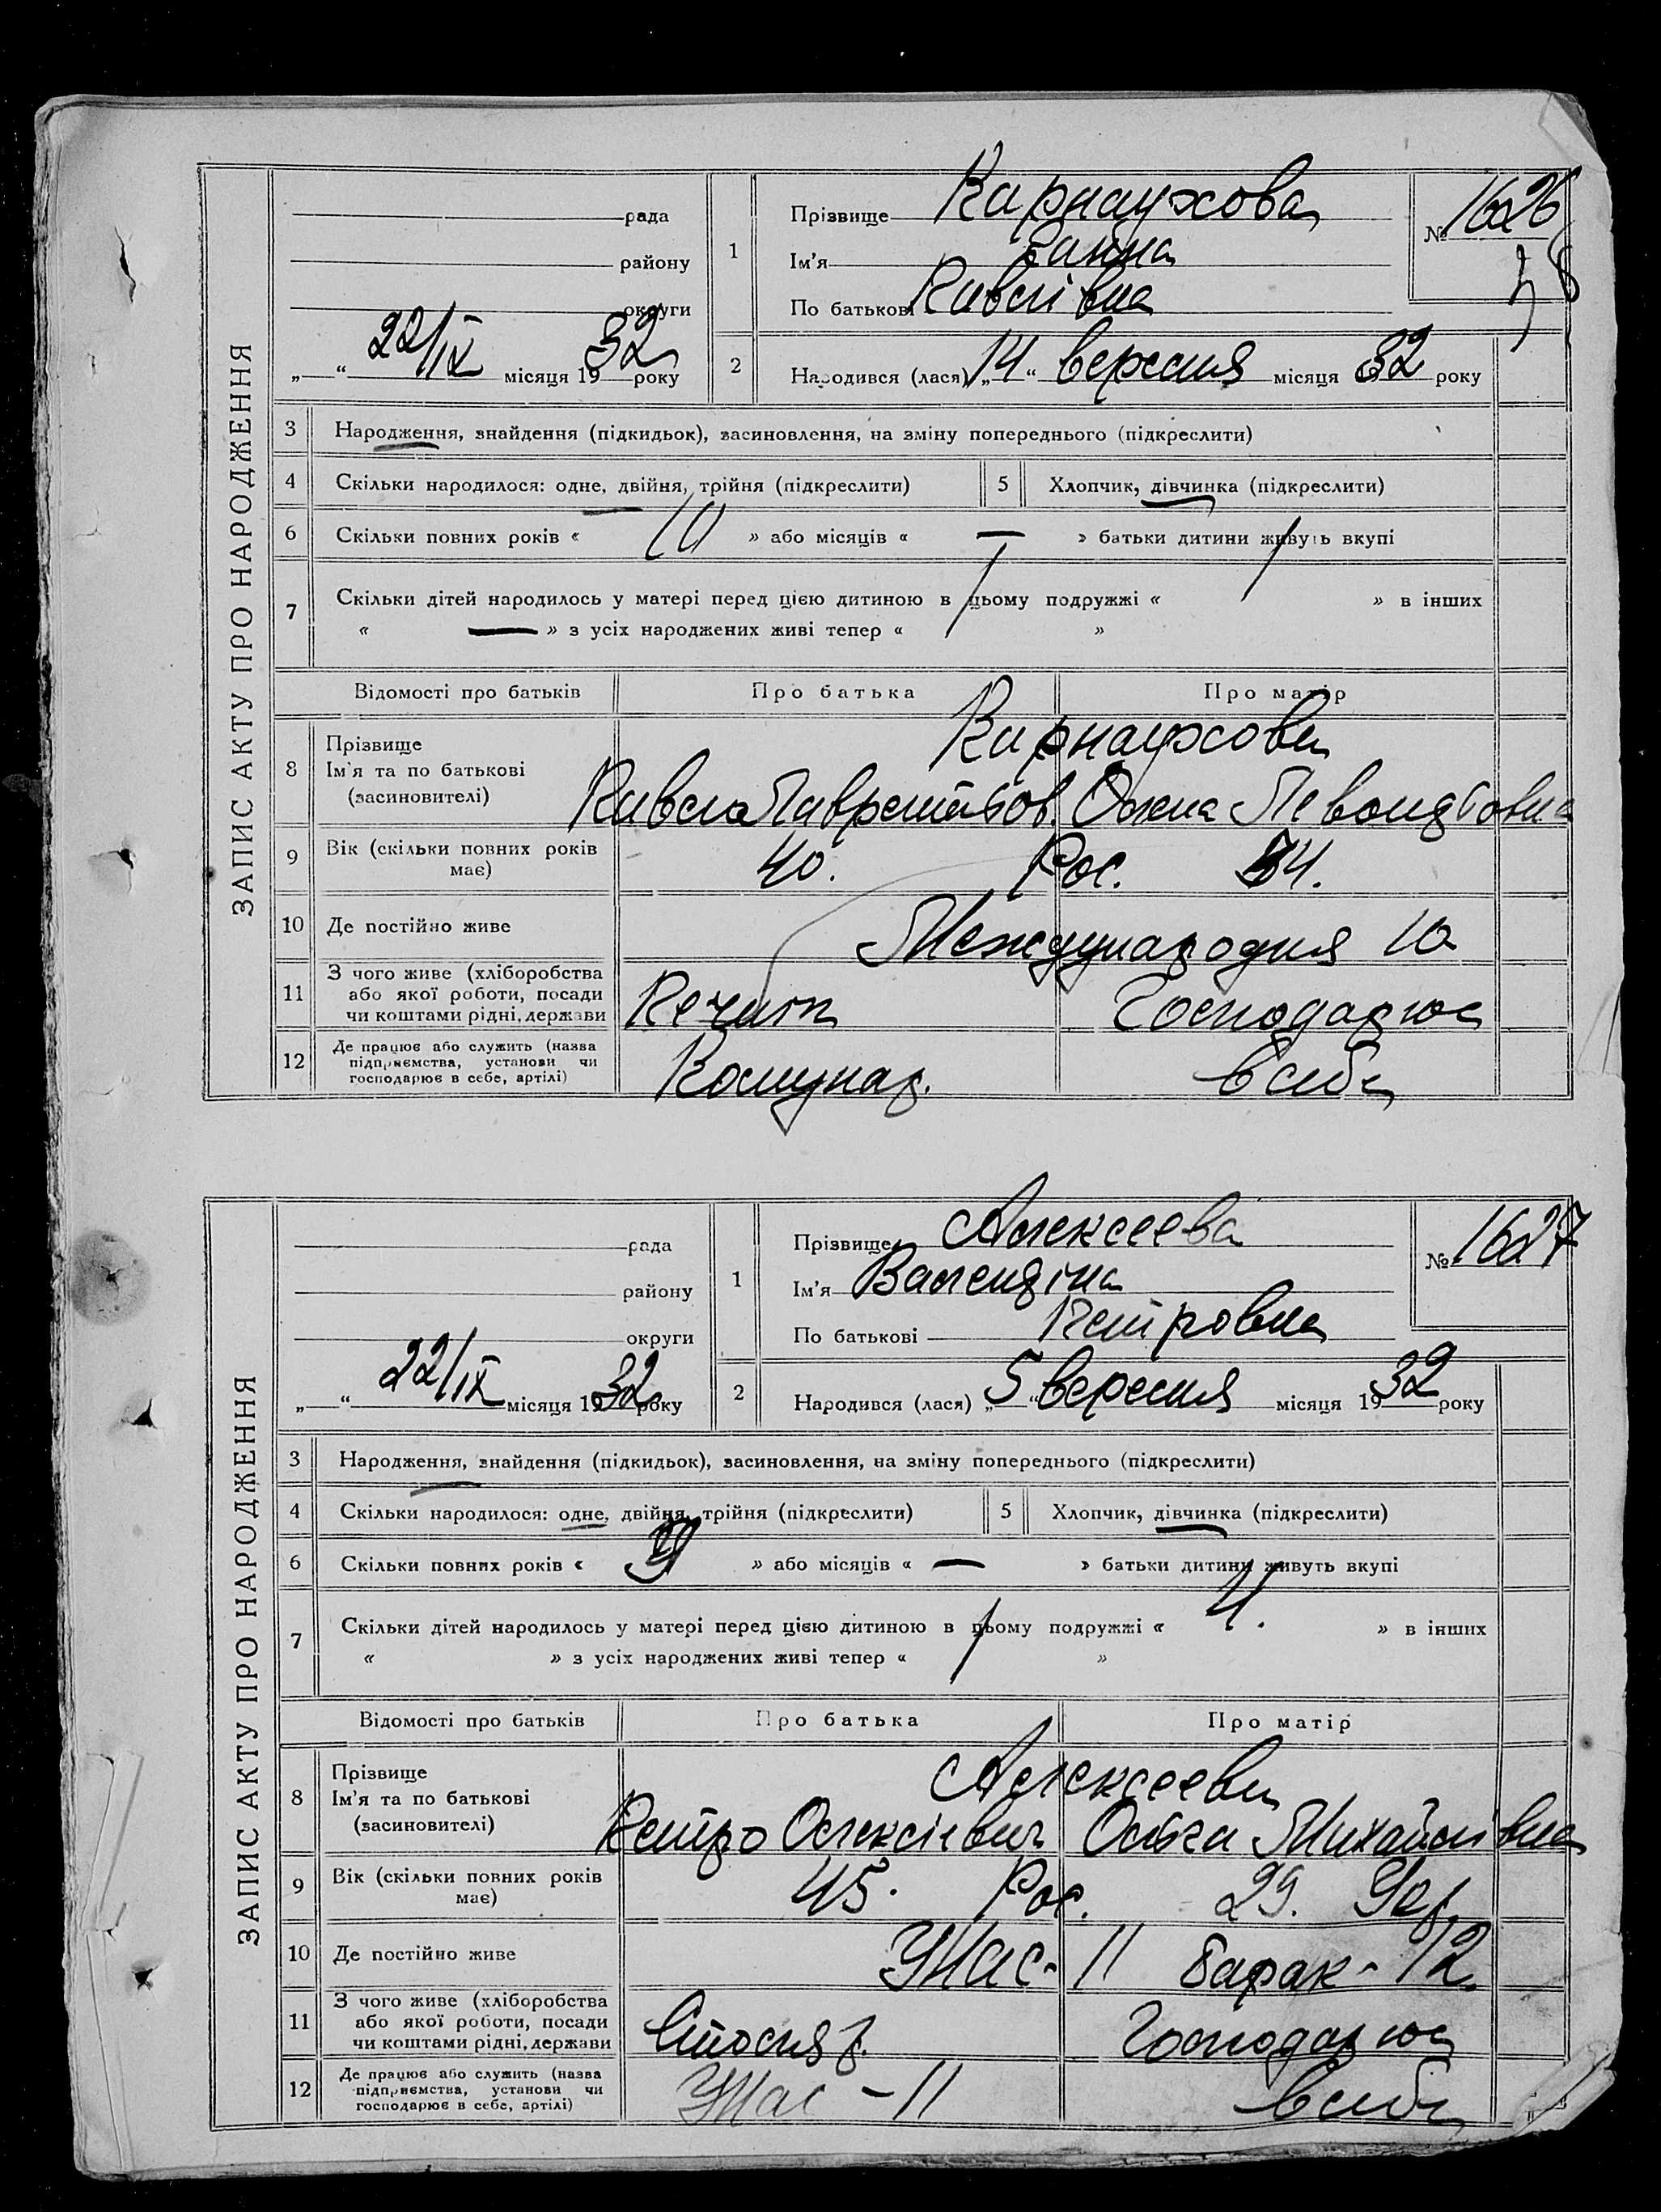 ЗАПИС АКТУ ПРО НАРОДЖЕННЯ
рада
району
округи
„ “ 22/IX місяця 1932 року
1
Прізвище Карнаухова
Ім'я Ганна
По батькові Павлівна
№ 1626
2
Народився (лася) „14“ вересня місяця 32 року
3 Народження, знайдення (підкидьок), засиновлення, на зміну попереднього (підкреслити)
4 Скільки народилося: одне, двійня, трійня (підкреслити) 5 Хлопчик, дівчинка (підкреслити)
6 Скільки повних років « 10 » або місяців « — » батьки дитини живуть вкупі
7 Скільки дітей народилось у матері перед цією дитиною в цьому подружжі « 1 » в інших
« — » з усіх народжених живі тепер « 1 »
Відомості про батьків Про батька Про матір
8 Прізвище
Ім'я та по батькові
(засиновителі)
Карнаухови
Павло
9 Вік (скільки повних років має) 40. Рос. 34.
10 Де постійно живе Международня 10
11 З чого живе (хліборобства або якої роботи, посади чи коштами рідні, держави Господарює
12 Де працює або служить (назва підприємства, установи чи господарює в себе, артілі) Комунар. в себе
ЗАПИС АКТУ ПРО НАРОДЖЕННЯ
рада
району
округи
„ “ 22/IX місяця 1932 року
1
Прізвище Алексеева
Ім'я Валендіна
По батькові Петровна
№ 1627
2
Народився (лася) „5“ вересня місяця 1932 року
3 Народження, знайдення (підкидьок), засиновлення, на зміну попереднього (підкреслити)
4 Скільки народилося: одне, двійня, трійня (підкреслити) 5 Хлопчик, дівчинка (підкреслити)
6 Скільки повних років « » або місяців « — » батьки дитини живуть вкупі
7 Скільки дітей народилось у матері перед цією дитиною в цьому подружжі « 4. » в інших
« » з усіх народжених живі тепер « 1 »
Відомості про батьків Про батька Про матір
8 Прізвище
Ім'я та по батькові
(засиновителі)
Алексееви
Петро Олексієвич Ольга Михайлівна
9 Вік (скільки повних років має) 45. Рос. 29.
10 Де постійно живе 11 барак - 12
11 З чого живе (хліборобства або якої роботи, посади чи коштами рідні, держави Столяр. Господарює
12 Де працює або служить (назва підприємства, установи чи господарює в себе, артілі) - 11 в себе